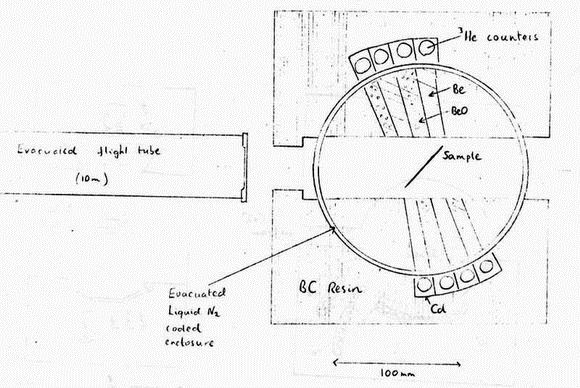 ³He counters
Be
BeO
Evacuated flight tube
(10m)
Sample
BC Resin
Evacuated
Liquid N₂
cooled
enclosure
Cd
100mm